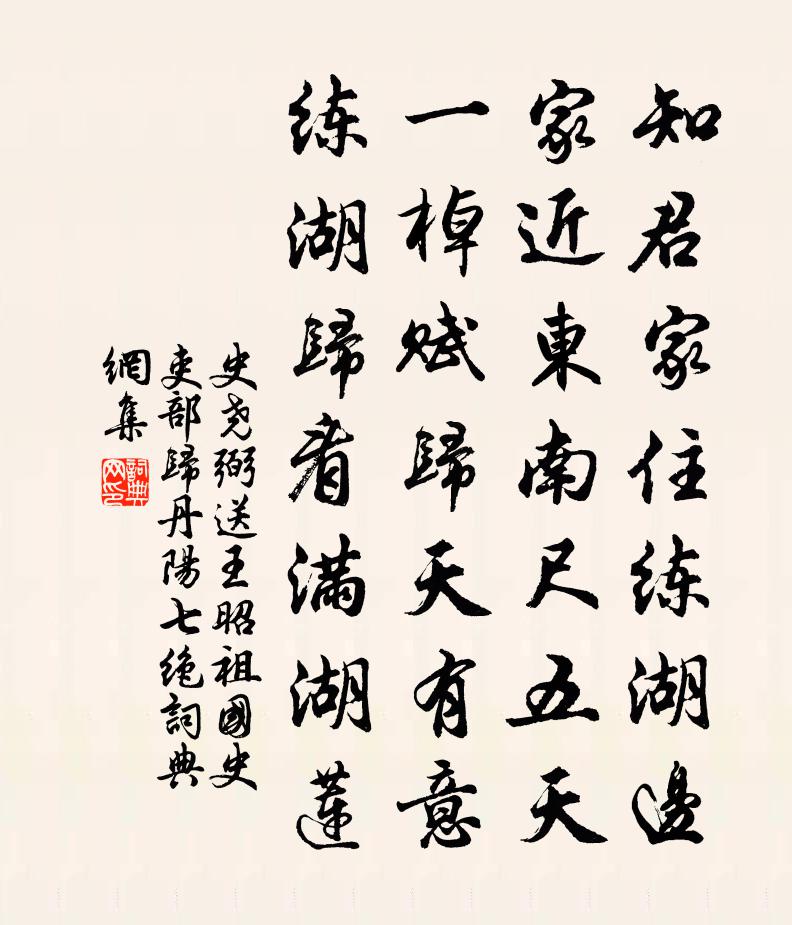 知君家住练湖邊
家近東南尺五天
一棹赋歸天有意
练湖歸看满湖蓮
史尧弼送王昭祖國史
吏部歸丹陽七绝詞典
網集
詞典
网印